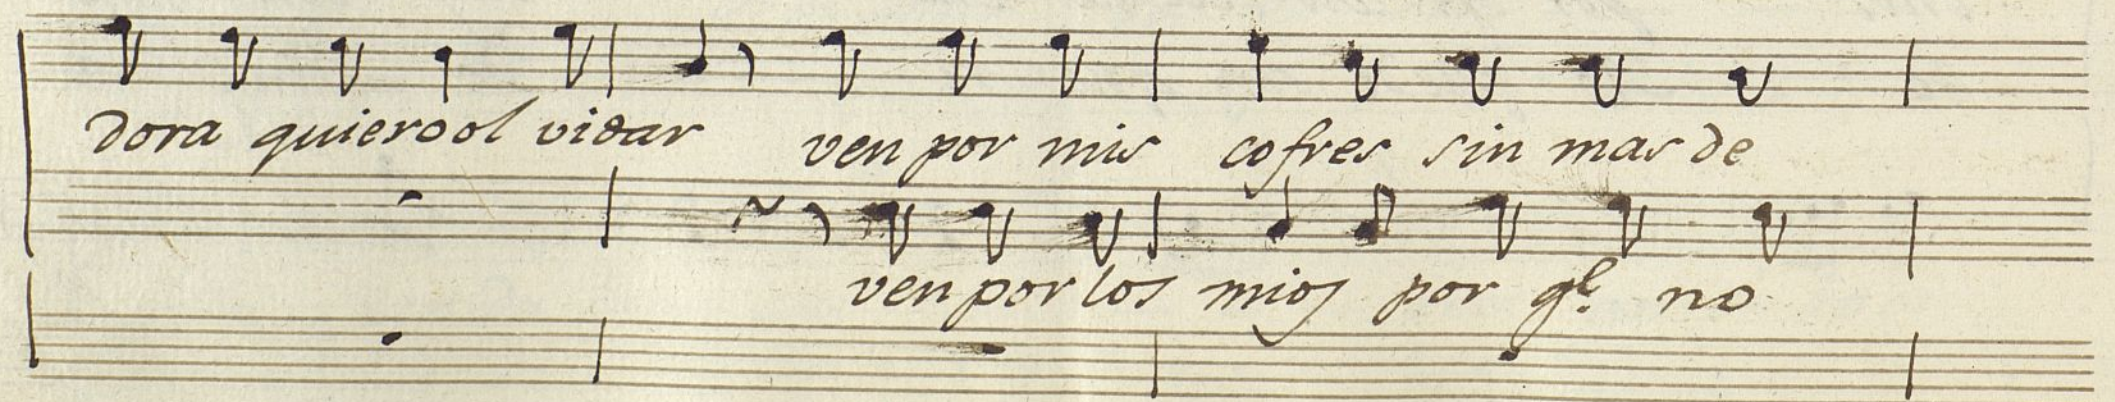 dora quiero ol vidar ven por mis cofres sin mas de
ven por los mios por qe. no